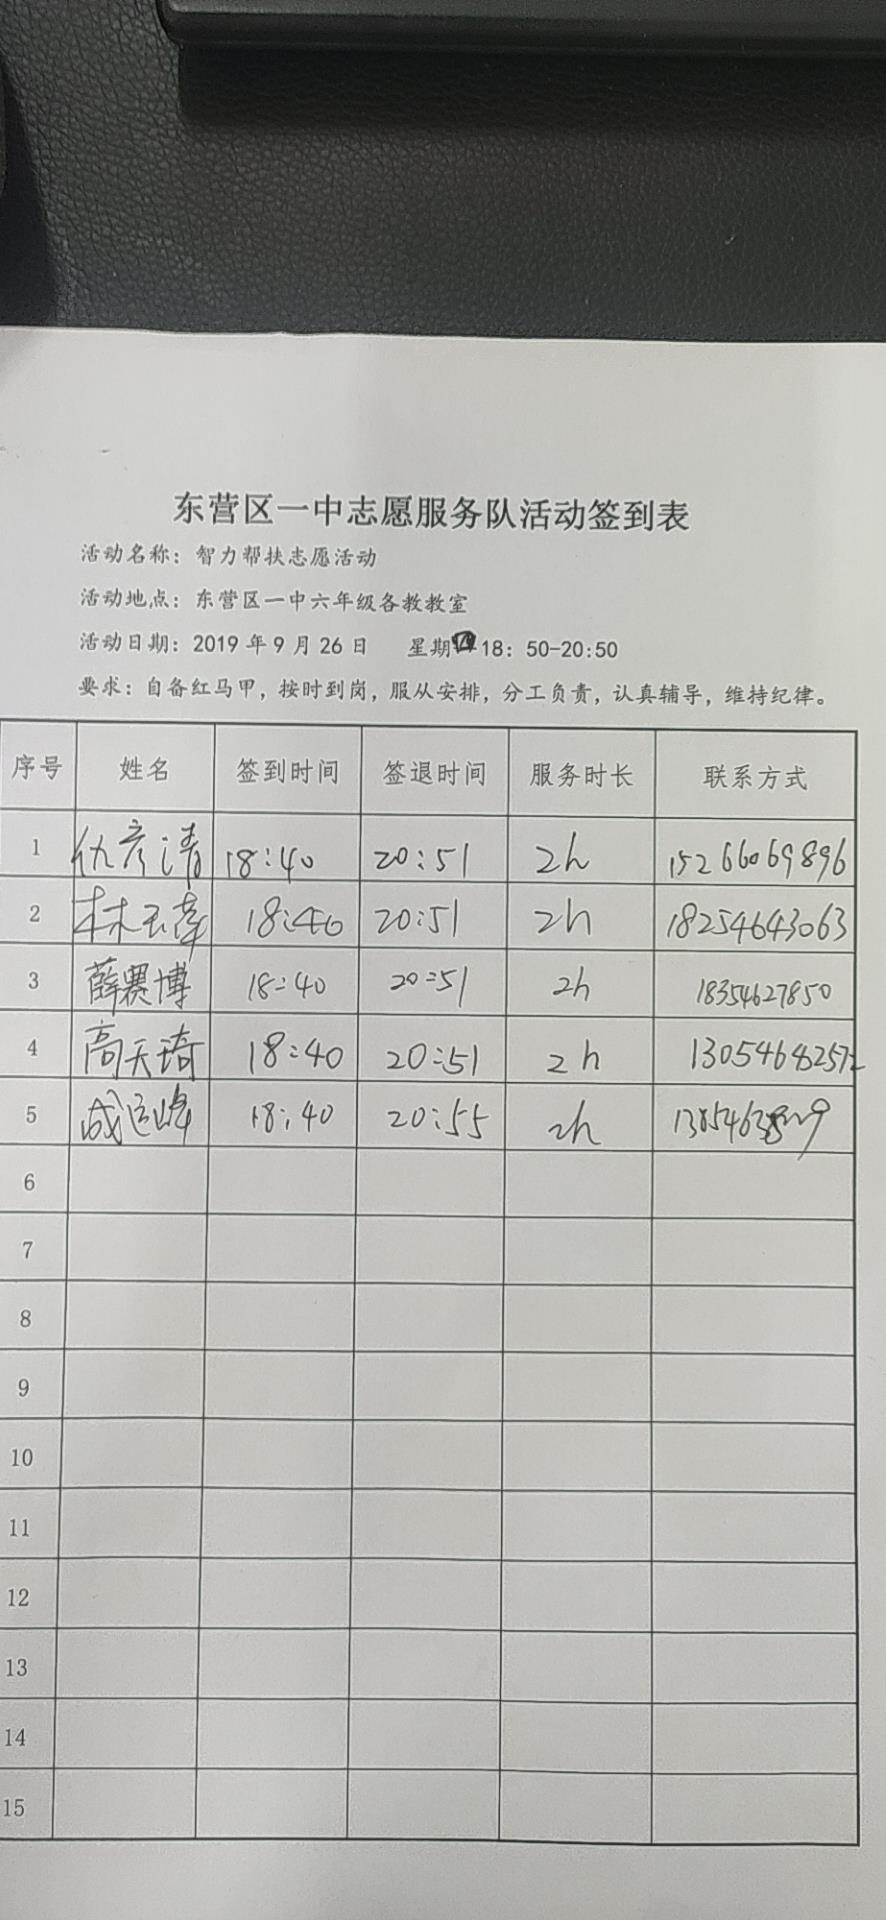 东营区一中志愿服务队活动签到表
活动名称：智力帮扶志愿活动
活动地点：东营区一中六年级各教教室
活动日期：2019年9月26日 星期四18：50-20:50
要求：自备红马甲，按时到岗，服从安排，分工负责，认真辅导，维持纪律。
序号 姓名 签到时间 签退时间 服务时长 联系方式
1 仇彦清 18:40 20:51 2h 15266069896
2 18:40 20:51 2h 18254643063
3 薛赛博 18:40 20:51 2h 18354627850
4 高天琦 18:40 20:51 2h
5 18:40 20:55 2h
6
7
8
9
10
11
12
13
14
15